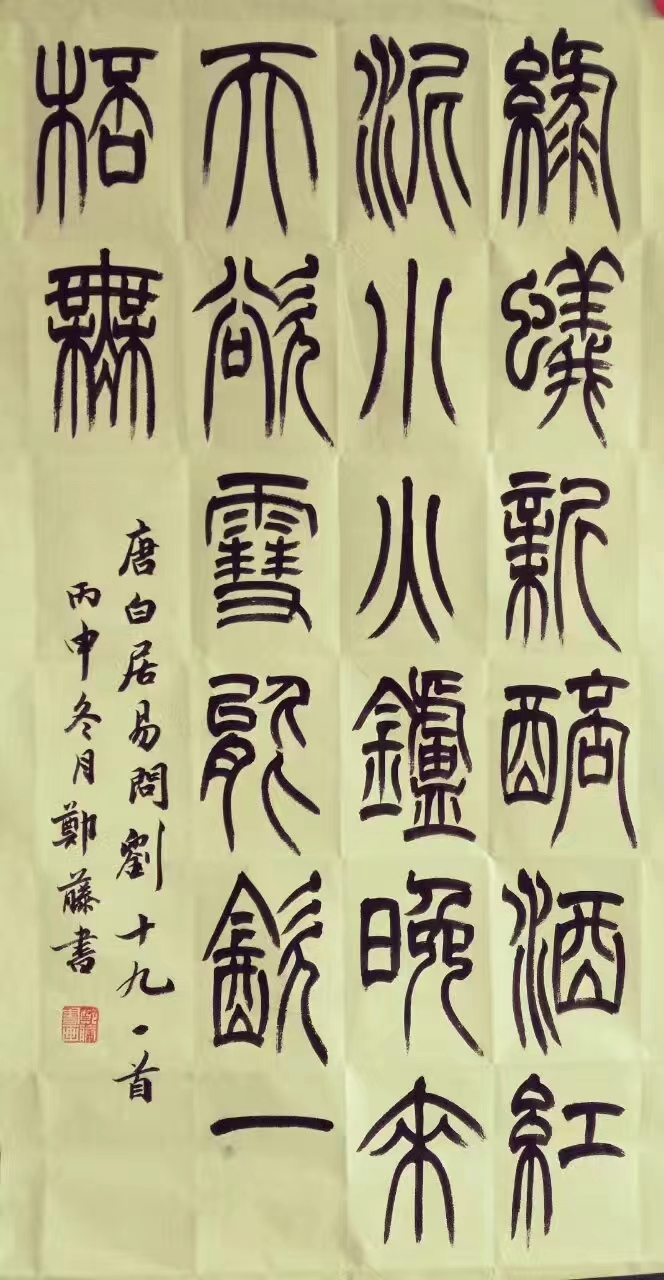 綠蟻新醅酒紅
泥小火鑪晚來
天欲雪能飲一
桮無
唐白居易問劉十九一首
丙申冬月鄭藤書